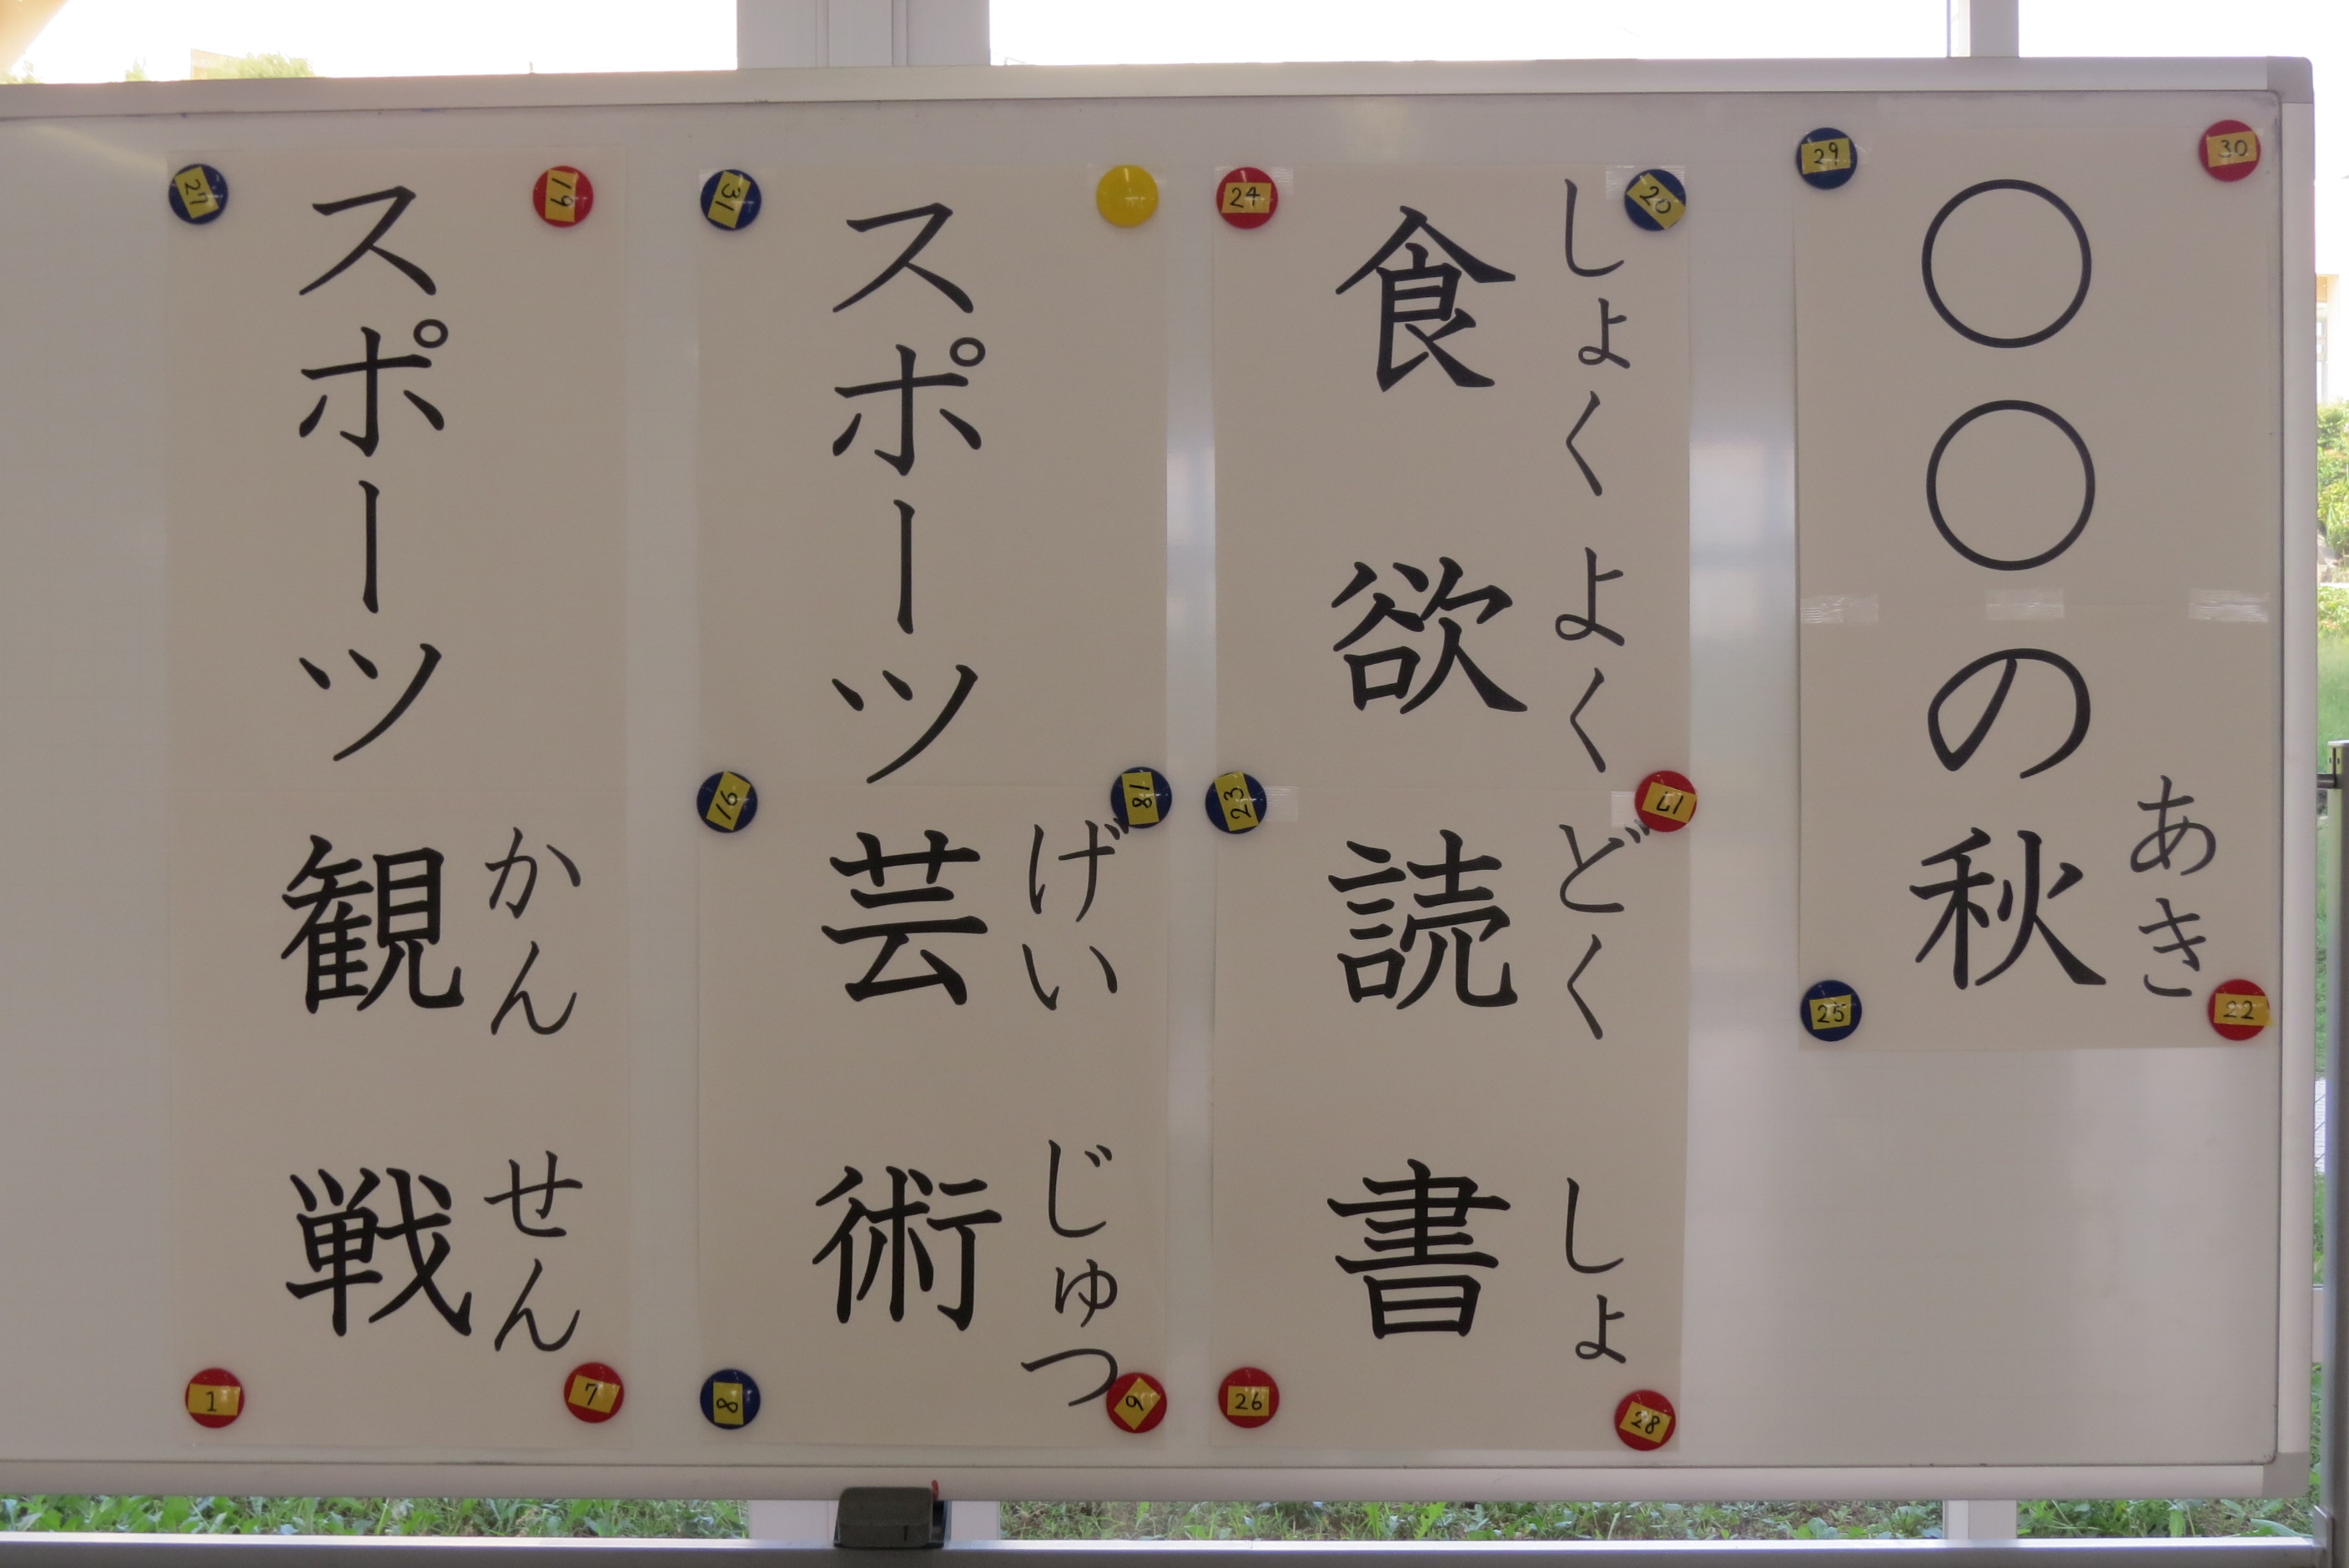 〇〇の秋
あき
食欲読書
しょくよくどくしょ
スポーツ芸術
げいじゅつ
スポーツ観戦
かんせん
29
30
25
22
24
20
23
17
26
28
31
16
18
8
9
27
19
1
7